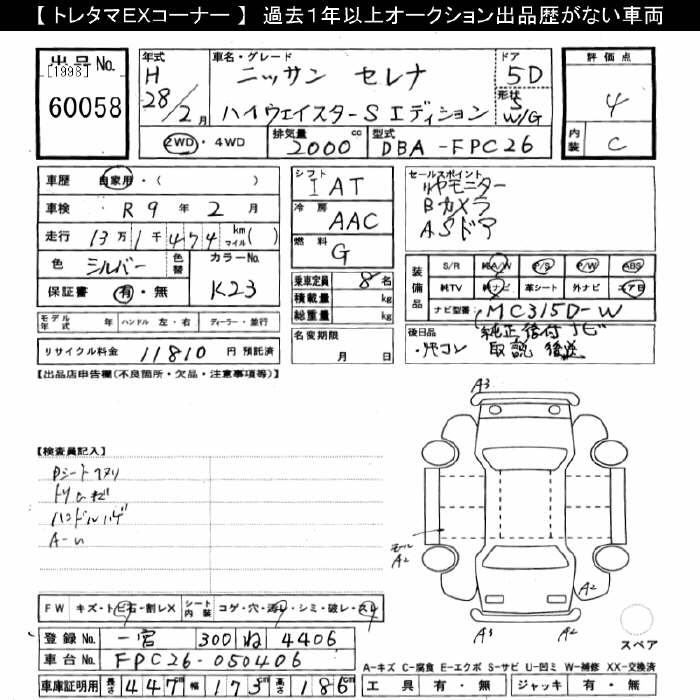 【 トレタマEXコーナー 】 過去１年以上オークション出品歴がない車両
出品No.
[1998]
60058
年式
H
28/2月
車名・グレード
ニッサン セレナ
ハイウェイスターS エディション
ドア
5D
形状
5
W/G
評価点
4
内装
C
2WD・4WD
排気量
2000 cc
型式
DBA-FPC26
車歴
自家用・( )
車検
R 9 年 2 月
走行
13万1千474 km マイル( )
色
シルバー
色替
カラーNo.
K23
保証書
有・無
モデル年式 年 ハンドル 左・右 ディーラー・並行
リサイクル料金 11810 円 預託済
シフト
I AT
冷房
AAC
燃料
G
乗車定員 8 名
積載量 kg
総重量 kg
名変期限
月 日
セールスポイント
リヤモニター
Bカメラ
ASドア
装備品
S/R 純A/W P/S P/W ABS
純TV 純ナビ 革シート 外ナビ エアB
ナビ型番( MC315D-W
後日品
純正後付ナビ
・リモコン 取説 後送
【出品店申告欄(不良箇所・欠品・注意事項等)】
【検査員記入】
Dシートスリ
トリムキズ
ハンドルハゲ
A-U
A3
モール
A2
A2
A3
A2
スペア
FW キズ・トビ石・割レX
シート内装 コゲ・穴・汚レ・シミ・破レ・スレ
登録No. 一宮 300 ね 4406
車台No. FPC26-050406
車庫証明用 長さ 447 cm 幅 173 cm 高さ 186 cm
A-キズ C-腐食 E-エクボ S-サビ U-凹ミ W-補修 XX-交換済
工具 有・無 ジャッキ 有・無